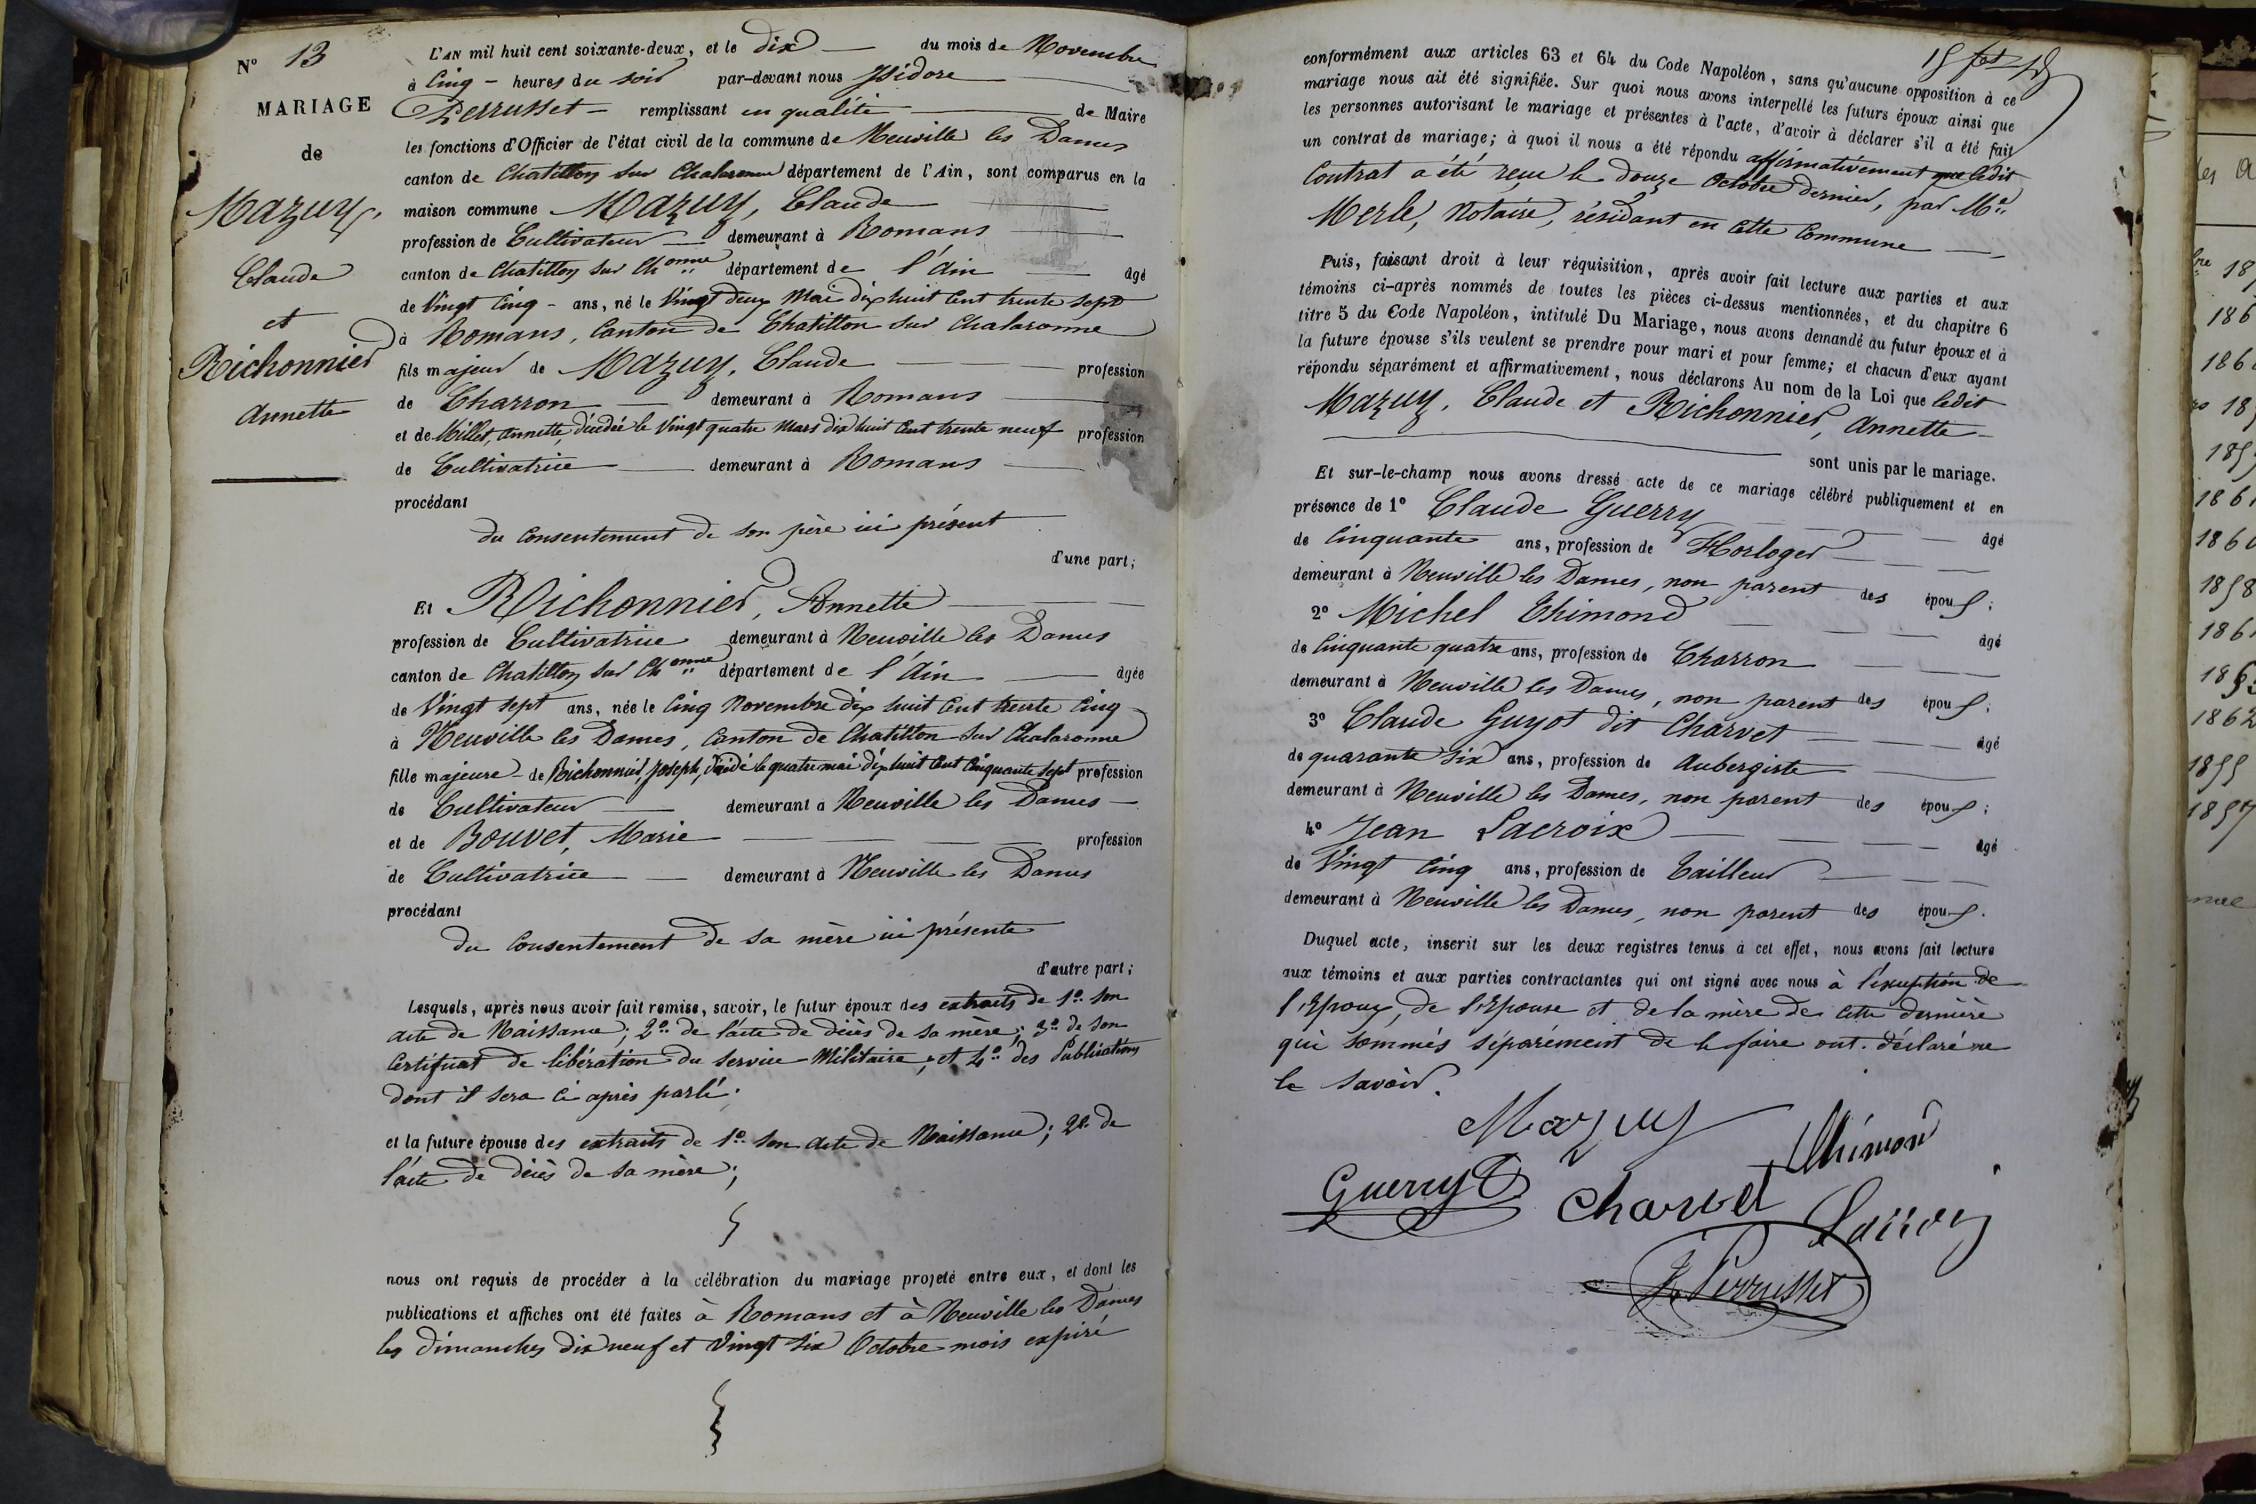 N° 13
MARIAGE
de
Mazuy,
Claude
et
Richonnier
Annette
L'AN mil huit cent soixante-deux, et le dix du mois de Novembre
à Cinq heures du soir par-devant nous Isidore
Perrusset remplissant en qualité de Maire
les fonctions d'Officier de l'état civil de la commune de Neuville les Dames
canton de Chatillon sur Chalaronne département de l'Ain, sont comparus en la
maison commune Mazuy, Claude
profession de Cultivateur demeurant à Romans
canton de Chatillon sur Chonne département de l'Ain âgé
de Vingt Cinq ans, né le Vingt deux Mai dix huit Cent trente sept
à Romans, Canton de Chatillon sur Chalaronne
fils majeur de Mazuy, Claude profession
de Charron demeurant à Romans
et de Millet, Annette décédée le Vingt quatre Mars dix huit Cent trente neuf profession
de Cultivatrice demeurant à Romans
procédant
du Consentement de son père ici présent
d'une part;
Et Richonnier, Annette
profession de Cultivatrice demeurant à Neuville les Dames
canton de Chatillon sur Chonne département de l'Ain âgée
de Vingt sept ans, née le Cinq Novembre dix huit Cent trente Cinq
à Neuville les Dames, Canton de Chatillon sur Chalaronne
fille majeure de Richonnier, Joseph, décédé le quatre mai dix huit Cent Cinquante sept profession
de Cultivateur demeurant à Neuville les Dames
et de Bouvet, Marie profession
de Cultivatrice demeurant à Neuville les Dames
procédant
du Consentement de sa mère ici présente
d'autre part;
Lesquels, après nous avoir fait remise, savoir, le futur époux des extraits de 1° son
acte de Naissance; 2° de l'acte de décès de sa mère; 3° de son
Certificat de libération du service Militaire, et 4° des Publications
dont il sera ci après parlé.
et la future épouse des extraits de 1° son acte de Naissance; 2° de
l'acte de décès de sa mère;
nous ont requis de procéder à la célébration du mariage projeté entre eux, et dont les
publications et affiches ont été faites à Romans et à Neuville les Dames
les dimanches dix neuf et Vingt six Octobre mois expiré
conformément aux articles 63 et 64 du Code Napoléon, sans qu'aucune opposition à ce
mariage nous ait été signifiée. Sur quoi nous avons interpellé les futurs époux ainsi que
les personnes autorisant le mariage et présentes à l'acte, d'avoir à déclarer s'il a été fait
un contrat de mariage; à quoi il nous a été répondu affirmativement que ledit
Contrat a été reçu le douze Octobre dernier, par Me
Merle, Notaire, résidant en cette Commune
Puis, faisant droit à leur réquisition, après avoir fait lecture aux parties et aux
témoins ci-après nommés de toutes les pièces ci-dessus mentionnées, et du chapitre 6
titre 5 du Code Napoléon, intitulé Du Mariage, nous avons demandé au futur époux et à
la future épouse s'ils veulent se prendre pour mari et pour femme; et chacun d'eux ayant
répondu séparément et affirmativement, nous déclarons Au nom de la Loi que ledit
Mazuy, Claude et Richonnier, Annette
sont unis par le mariage.
Et sur-le-champ nous avons dressé acte de ce mariage célébré publiquement et en
présence de 1° Claude Guerry âgé
de Cinquante ans, profession de Horloger
demeurant à Neuville les Dames, non parent des époux;
2° Michel Thimond âgé
de Cinquante quatre ans, profession de Charron
demeurant à Neuville les Dames, non parent des époux;
3° Claude Guyot dit Charvet âgé
de quarante six ans, profession de Aubergiste
demeurant à Neuville les Dames, non parent des époux;
4° Jean Lacroix âgé
de Vingt Cinq ans, profession de Tailleur
demeurant à Neuville les Dames, non parent des époux.
Duquel acte, inscrit sur les deux registres tenus à cet effet, nous avons fait lecture
aux témoins et aux parties contractantes qui ont signé avec nous à l'exception de
l'Epoux, de l'Epouse et de la mère de cette dernière
qui sommés séparément de le faire ont déclaré ne
le savoir.
Mazuy
Thimond
Guerry
Charvet
Lacroix
Perrusset
186
1858
1862
1855
1857